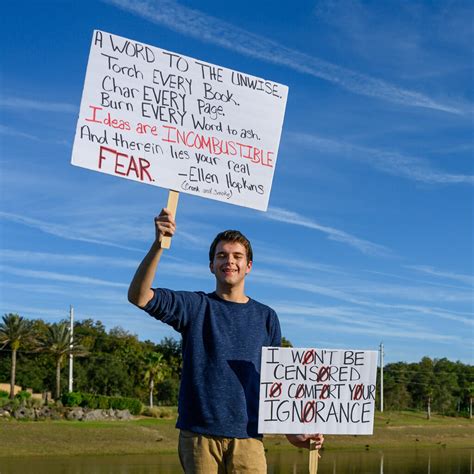 A WORD TO THE UNWISE.
Torch EVERY Book.
Char EVERY Page.
Burn EVERY Word to ash.
Ideas are INCOMBUSTIBLE
And therein lies your real
FEAR. -Ellen Hopkins
(Crank and Smoke)
I WON'T BE
CENSORED
TO COMFORT YOUR
IGNORANCE